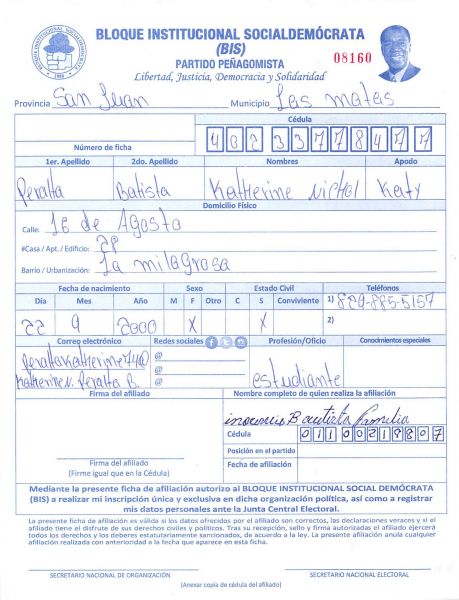 BLOQUE INSTITUCIONAL SOCIALDEMÓCRATA
(BIS)
PARTIDO PEÑAGOMISTA
08160
Libertad, Justicia, Democracia y Solidaridad
Provincia San Juan Municipio Las matas
Cédula
Número de ficha 40233778477
1er. Apellido 2do. Apellido Nombres Apodo
Peralta Batista Katherine Nichol Katy
Domicilio Físico
Calle: 16 de Agosto
#Casa / Apt. / Edificio: 28
Barrio / Urbanización: La milagrosa
Fecha de nacimiento Sexo Estado Civil Teléfonos
Día Mes Año M F Otro C S Conviviente 1) 829-885-5157
22 9 2000 X X 2)
Correo electrónico Redes sociales Profesión/Oficio Conocimientos especiales
PeraltaKatherine74@ @
Katherine N. Peralta B. @ estudiante
@
Firma del afiliado Nombre completo de quien realiza la afiliación
Bautista Familia
Cédula 01100219807
Posición en el partido
Firma del afiliado
(Firme igual que en la Cédula)
Fecha de afiliación
Mediante la presente ficha de afiliación autorizo al BLOQUE INSTITUCIONAL SOCIAL DEMÓCRATA
(BIS) a realizar mi inscripción única y exclusiva en dicha organización política, así como a registrar
mis datos personales ante la Junta Central Electoral.
La presente ficha de afiliación es válida si los datos ofrecidos por el afiliado son correctos, las declaraciones veraces y si el
afiliado tiene el disfrute de sus derechos civiles y políticos. Tras su recepción, sello y firma autorizadas el afiliado ejercerá
todos los derechos y los deberes estatutariamente sancionados, de acuerdo a la ley. La presente afiliación anula cualquier
afiliación realizada con anterioridad a la fecha que aparece en esta ficha.
SECRETARIO NACIONAL DE ORGANIZACIÓN SECRETARIO NACIONAL ELECTORAL
(Anexar copia de cédula del afiliado)